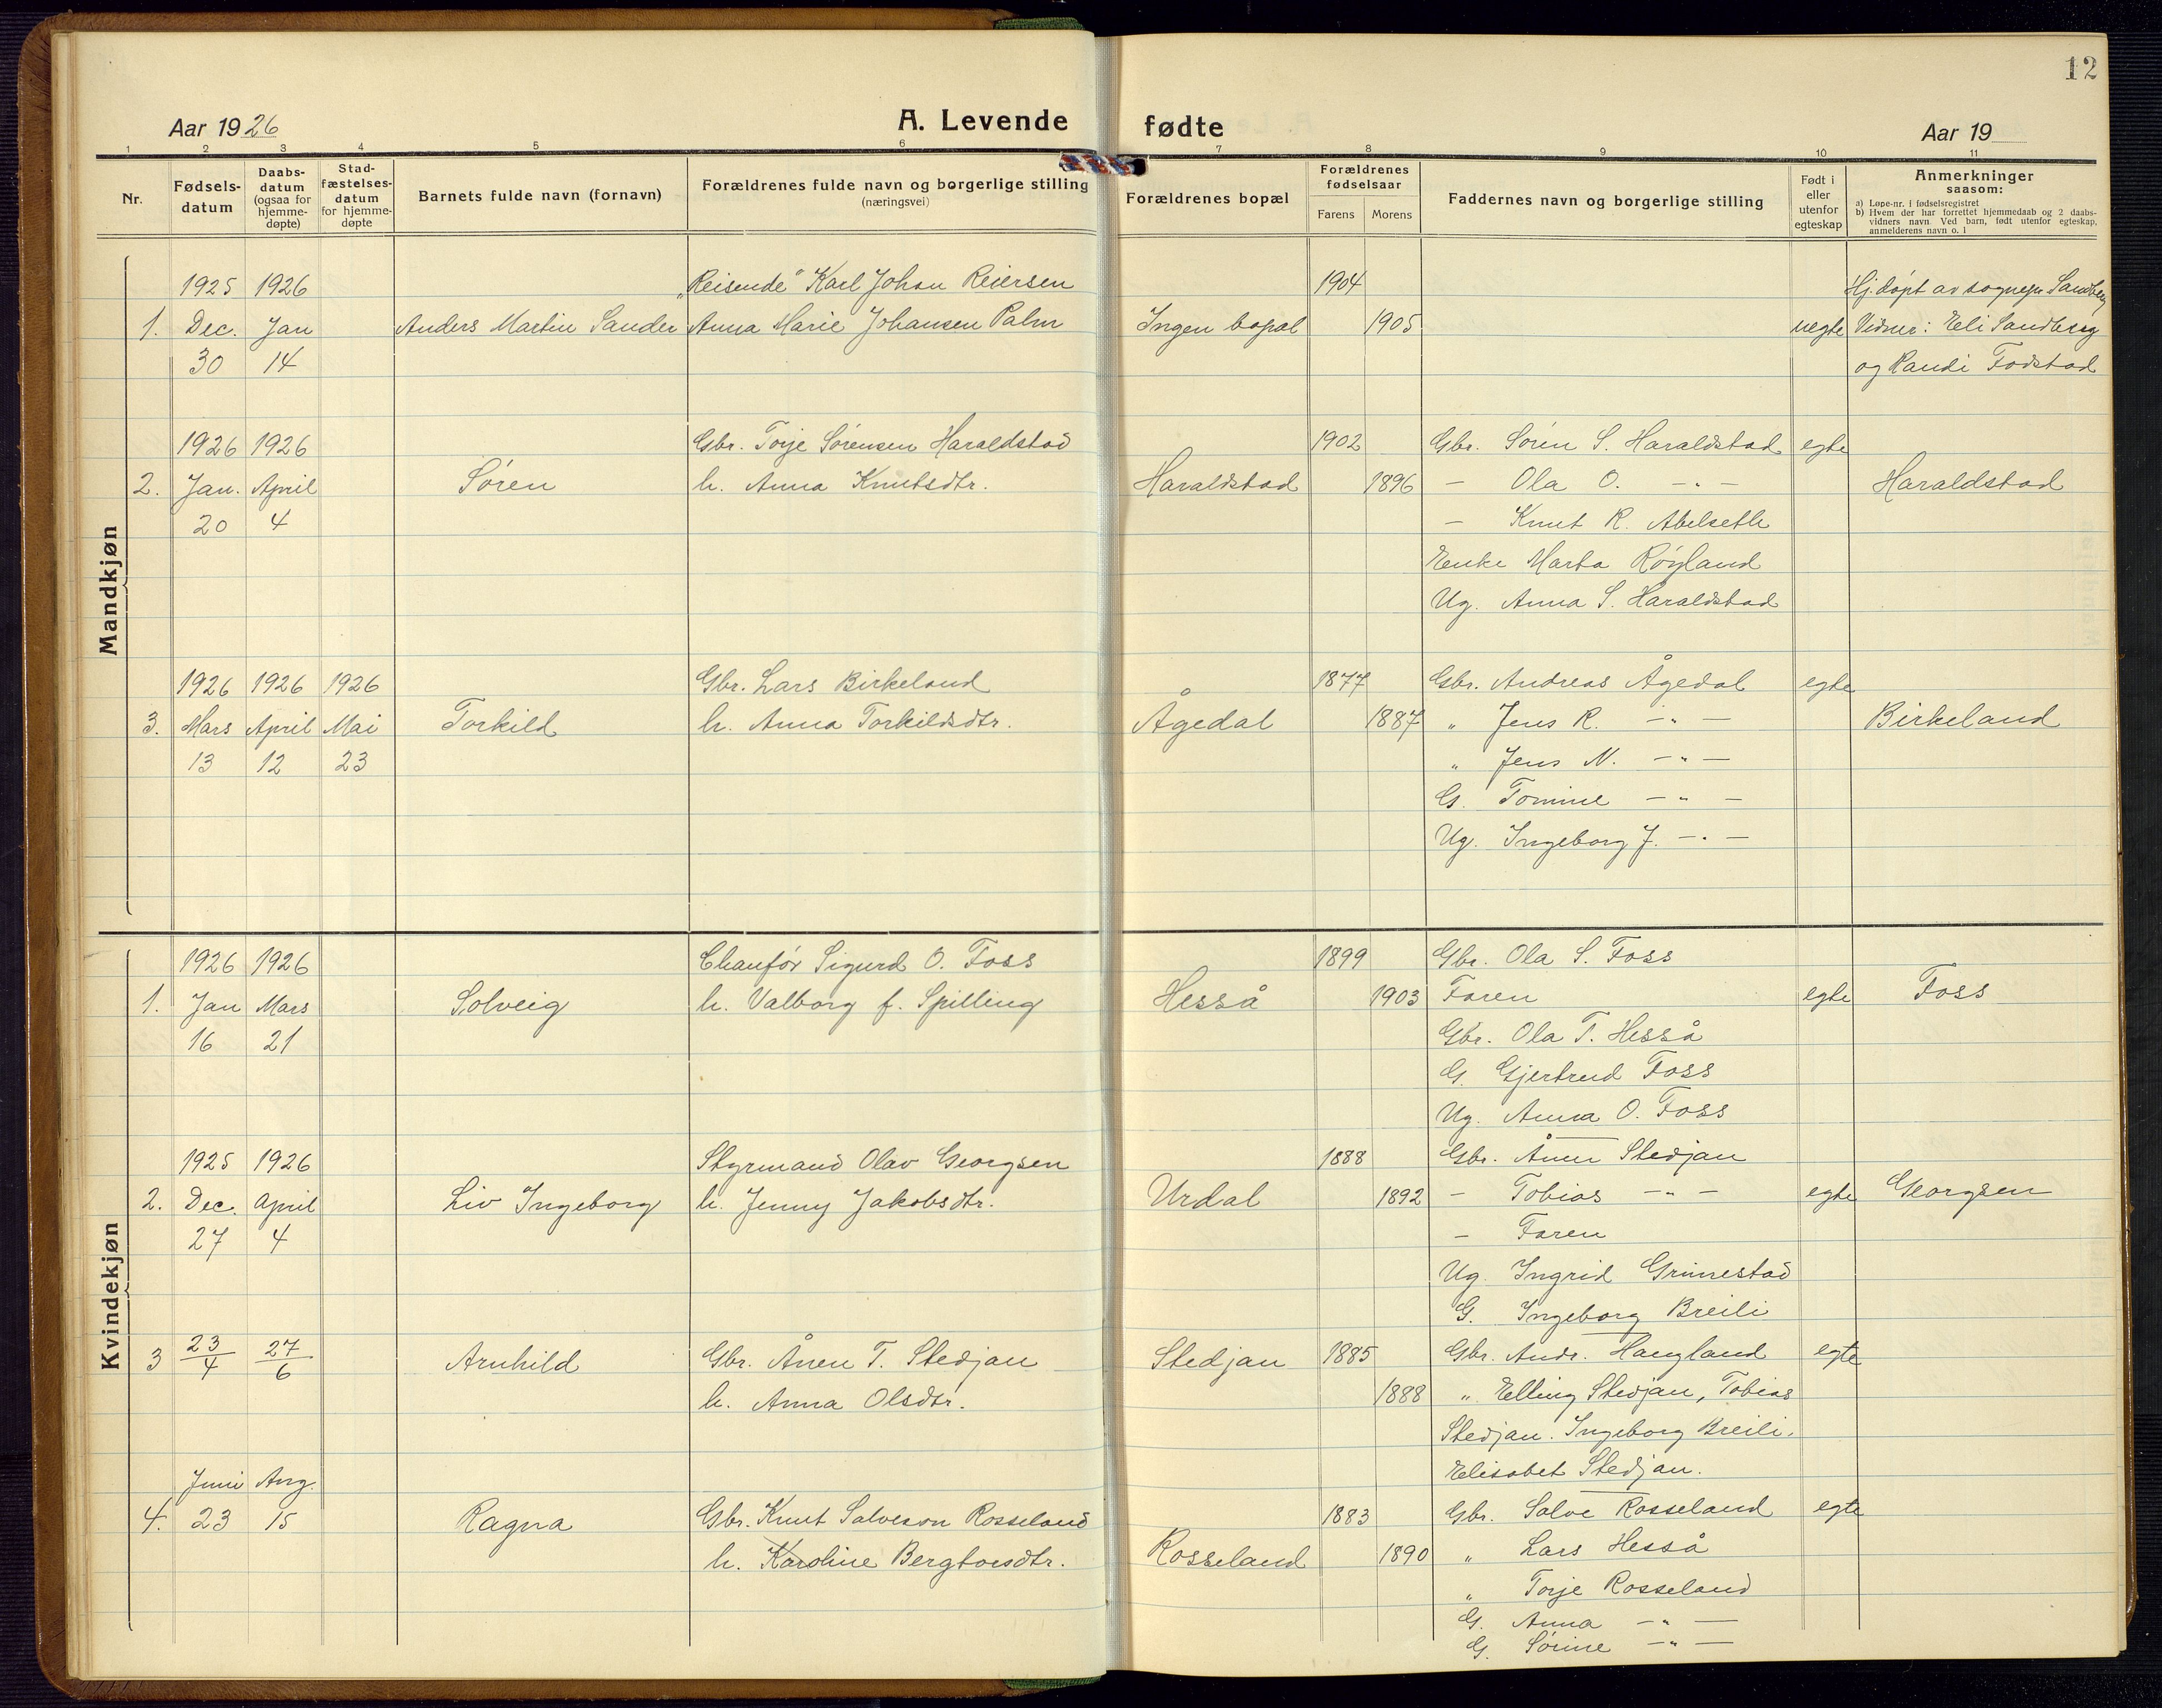 12
Aar 1926
A. Levende fødte
Aar 19
1 2 3 4 5 6 7 8 9 10 11
Nr.
Fødsels-
datum
Daabs-
datum
(ogsaa for
hjemme-
døpte)
Stad-
fæstelses-
datum
for hjemme-
døpte
Barnets fulde navn (fornavn)
Forældrenes fulde navn og borgerlige stilling
(næringsvei)
Forældrenes bopæl
Forældrenes
fødselsaar
Farens Morens
Faddernes navn og borgerlige stilling
Født i
eller
utenfor
egteskap
Anmerkninger
saasom:
a) Løpe-nr. i fødselsregistret
b) Hvem der har forrettet hjemmedaab og 2 daabs-
vidners navn. Ved barn, født utenfor egteskap,
anmelderens navn o. l
Mandkjøn
1925 1926 "Reisende" Karl Johan Reiersen 1904 Hj. døpt av sognepr Sandberg
1. Dec. Jan Anders Martin Sander Anna Marie Johansen Palm Ingen bopæl 1905 uegte Vidner: Eli Sandberg
30 14 og Randi Fodstad
1926 1926 Gbr. Torje Sørensen Haraldstad 1902 Gbr. Søren S. Haraldstad egte
2. Jan. April Søren h. Anna Knutsdtr. Haraldstad 1896 - Ola O. - " - Haraldstad
20 4 - Knut R. Abelseth
Enke Marta Røyland
Ug. Anna S. Haraldstad
1926 1926 1926 Gbr. Lars Birkeland 1877 Gbr. Andreas Ågedal egte
3. Mars April Mai Torkild h. Anna Torkildsdtr. Ågedal 1887 " Jens R. - " - Birkeland
13 12 23 " Jens N. - " -
G. Tomine - " -
Ug. Ingeborg J. - " -
Kvindekjøn
1926 1926 Chaufør Sigurd O. Foss 1899 Gbr. Ola S. Foss
1. Jan Mars Solveig h. Valborg f. Spilling Hesså 1903 Faren egte Foss
16 21 Gbr. Ola T. Hesså
G. Gjertrud Foss
Ug. Anna O. Foss
1925 1926 Styrmand Olav Georgsen 1888 Gbr. Ånen Stedjan
2. Dec. April Liv Ingeborg h. Jenny Jakobsdtr. Urdal 1892 - Tobias - " - egte Georgsen
27 4 - Faren
Ug. Ingrid Grimestad
G. Ingeborg Breili
3 23/4 27/6 Arnhild Gbr. Ånen T. Stedjan Stedjan 1885 Gbr. Andr. Haugland egte
h. Anna Olsdtr. 1888 " Elling Stedjan, Tobias
Stedjan. Ingeborg Breili.
Elisabet Stedjan.
Juni Aug.
4. 23 15 Ragna Gbr. Knut Salveson Rosseland 1883 Gbr. Salve Rosseland egte
h. Karoline Bergtorsdtr. Rosseland 1890 " Lars Hesså
" Torje Rosseland
G. Anna - " -
G. Sørine - " -